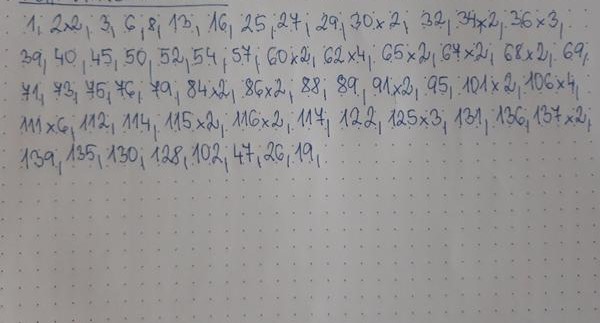 1, 2x2, 3, 6, 8, 13, 16, 25, 27, 29, 30x2, 32, 34x2, 36x3,
39, 40, 45, 50, 52, 54, 57, 60x2, 62x4, 65x2, 67x2, 68x2, 69,
71, 73, 75, 76, 79, 84x2, 86x2, 88, 89, 91x2, 95, 101x2, 106x4,
111x6, 112, 114, 115x2, 116x2, 117, 122, 125x3, 131, 136, 137x2,
139, 135, 130, 128, 102, 47, 26, 19,